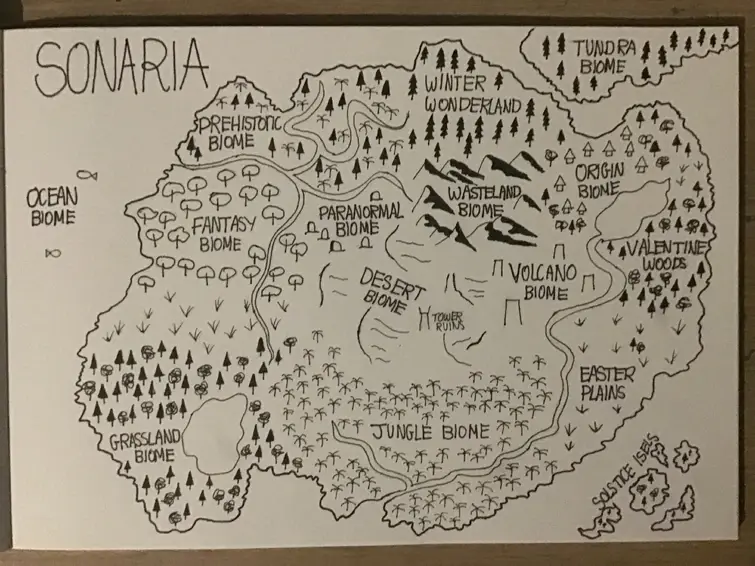 SONARIA
TUNDRA
BIOME
WINTER
WONDERLAND
PREHISTORIC
BIOME
ORIGIN
BIOME
OCEAN
BIOME
WASTELAND
BIOME
FANTASY
BIOME
PARANORMAL
BIOME
VALENTINE
WOODS
DESERT
BIOME
VOLCANO
BIOME
TOWER
RUINS
EASTER
PLAINS
GRASSLAND
BIOME
JUNGLE BIOME
SOLSTICE ISELS